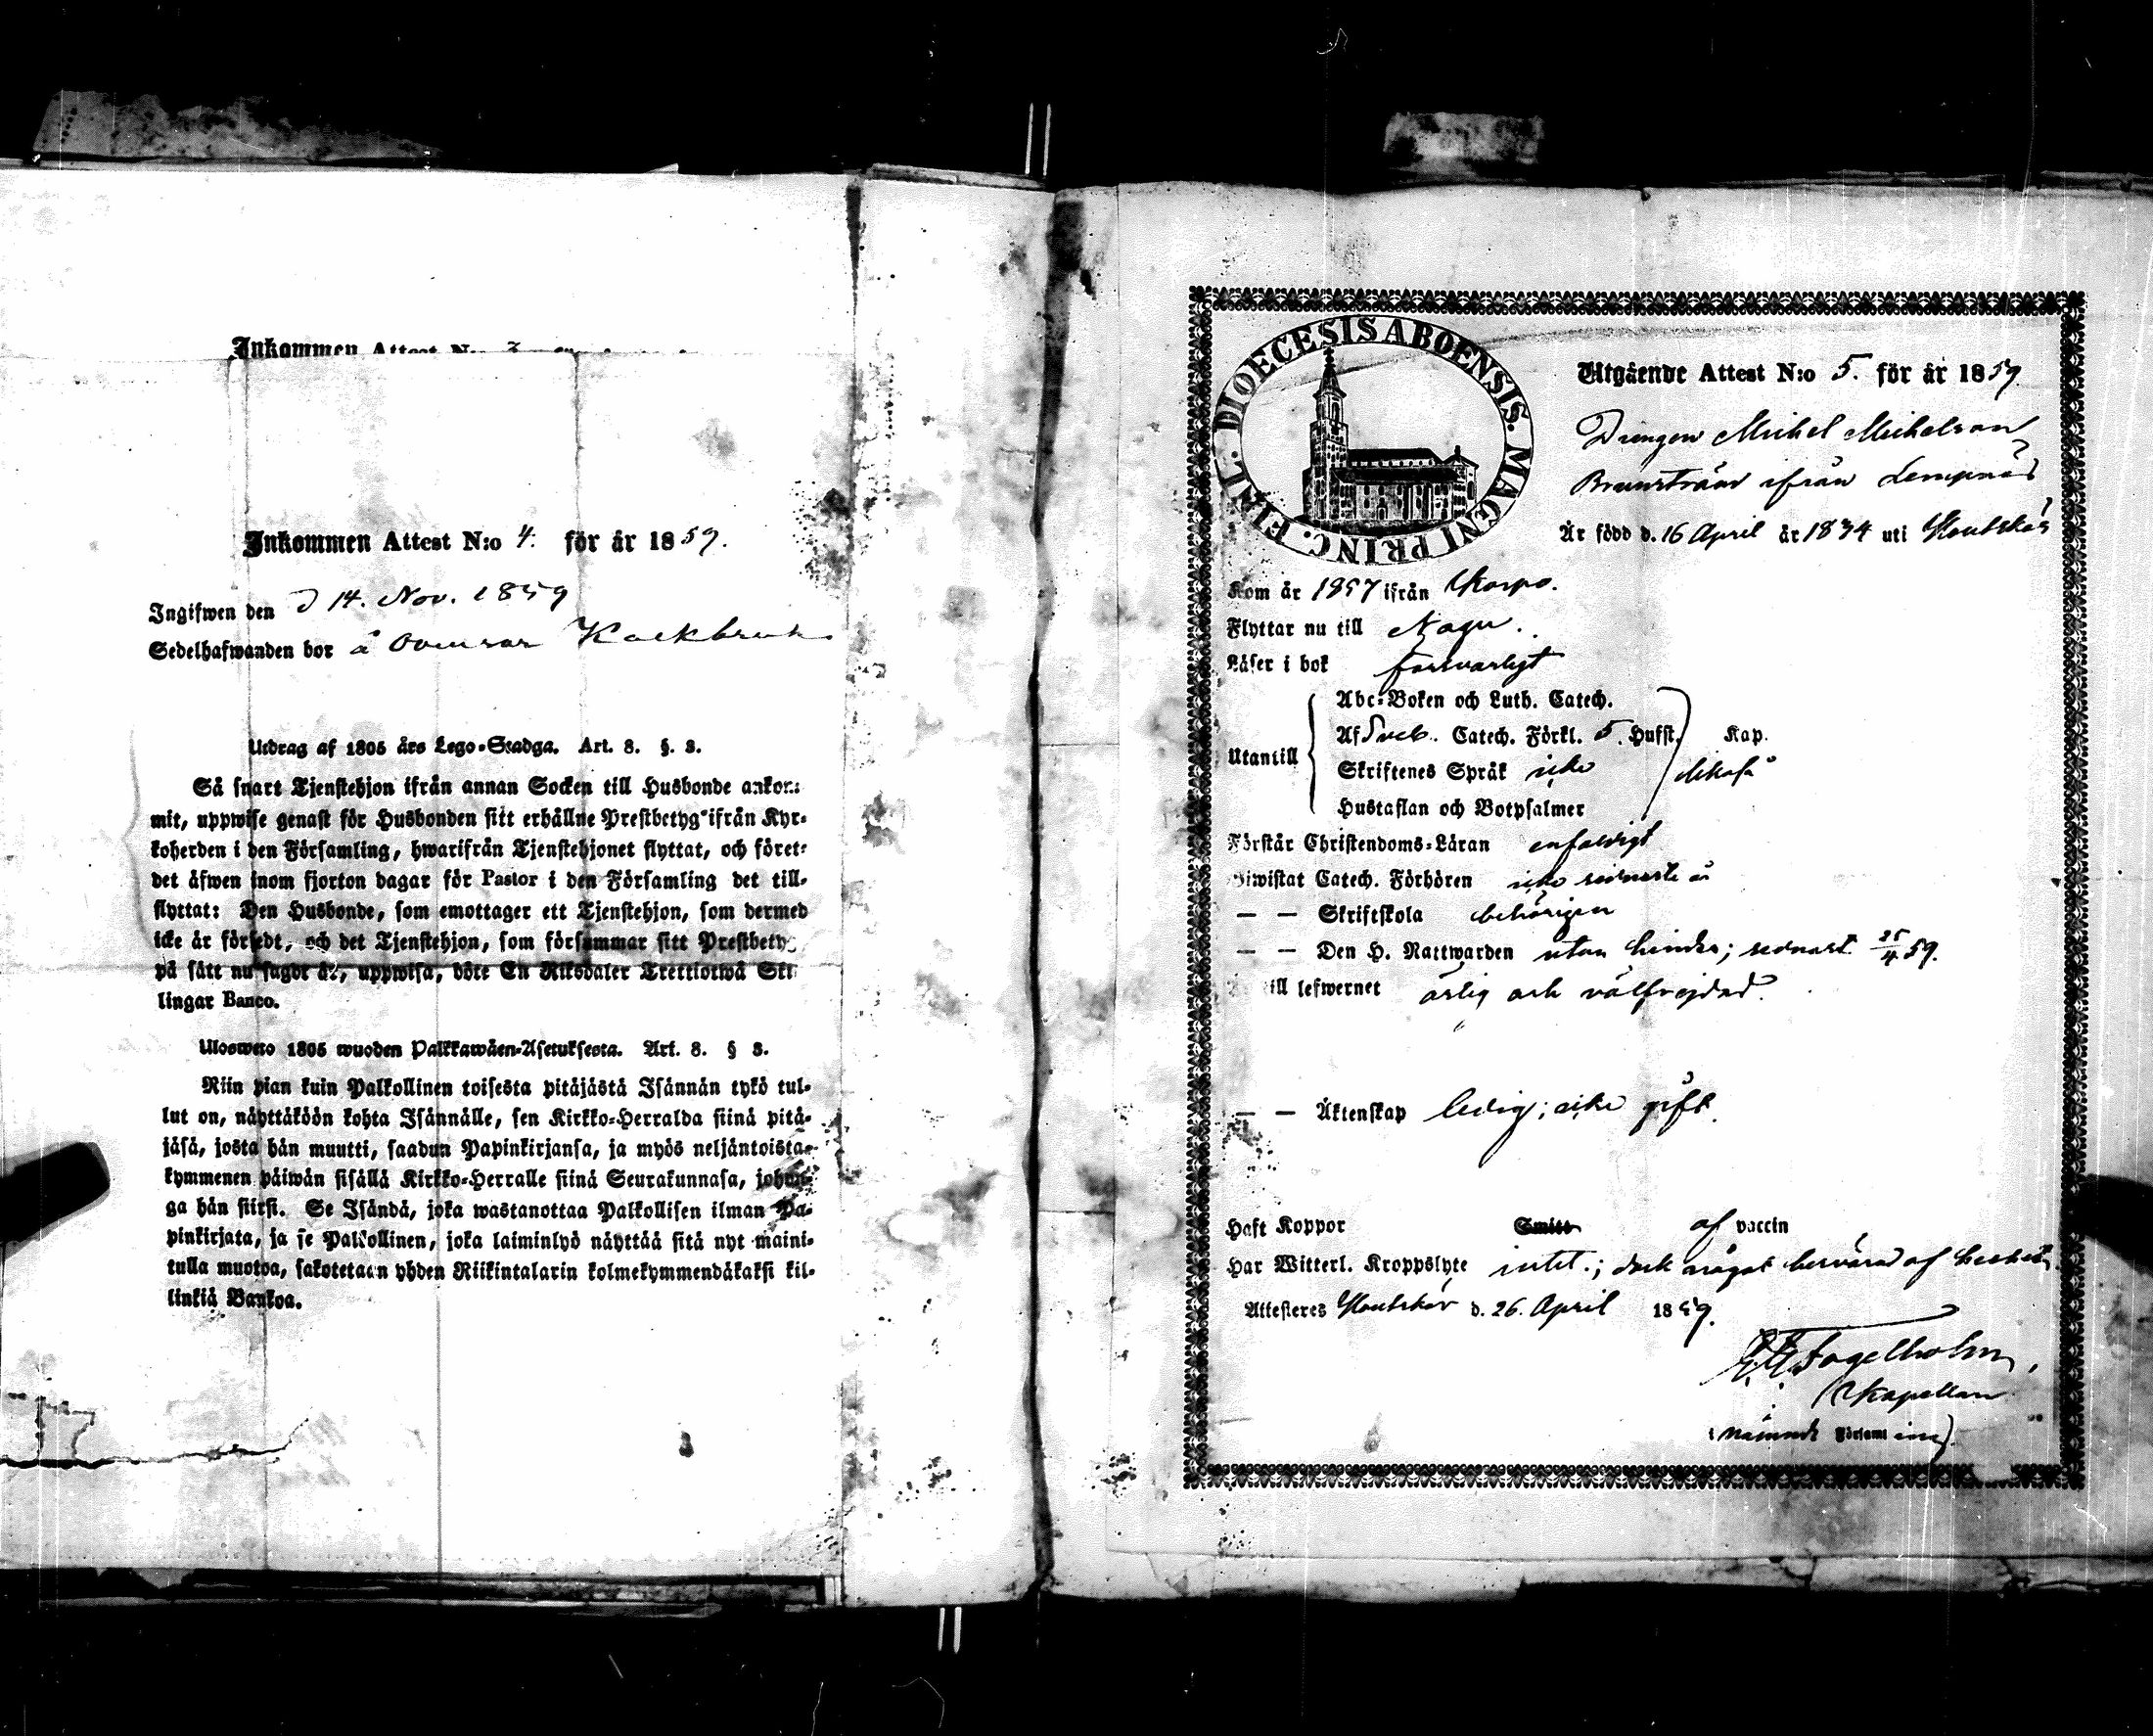 Inkommen Attest N:o
Inkommen Attest N:o 4. för år 1859.
Ingifwen den d 14. Nov. 1859
Sedelhafwanden bor å Kalkbruk
Utdrag af 1805 års Lego-Stadga. Art. 8. §. 3.
Så snart Tjenstehjon ifrån annan Socken till Husbonde ankom:
mit, uppwise genast för Husbonden sitt erhållne Prestbetyg ifrån Kyr-
koherden i den Församling, hwarifrån Tjenstehjonet flyttat, och föret-
det äfwen inom fjorton dagar för Pastor i den Församling det till-
flyttat: Den Husbonde, som emottager ett Tjenstehjon, som dermed
icke är försedt, och det Tjenstehjon, som försummar sitt Prestbetyg
på sätt nu sagdt är, uppwisa, böte En Riksdaler Trettiotwå Skil
lingar Banco.
Ulosweto 1805 wuoden Palkkawäen-Asetuksesta. Art. 8. § 3.
Niin pian kuin Palkollinen toisesta pitäjästä Isännän tykö tul-
lut on, näyttäköön kohta Isännälle, sen Kirkko-Herralda siinä pitä-
jäsä, josta hän muutti, saadun Papinkirjansa, ja myös neljäntoista-
kymmenen päiwän sisällä Kirkko-Herralle siinä Seurakunnasa, johon-
ga hän siirsi. Se Isändä, joka wastanottaa Palkollisen ilman Pa-
pinkirjata, ja se Palkollinen, joka laiminlyö näyttää sitä nyt maini-
tulla muotoa, sakotetaan yhden Riikintalarin kolmekymmendäkaksi kil-
linkiä Bankoa.
DIOECESIS ABOENSIS. MAGNI PRINC. FINL.
Utgående Attest N:o 5. för år 1859
Drengen Michel Michelsson
Brunström ifrån Lempnäs
Är född d. 16 April år 1834 uti Houtskär
Kom år 1857 ifrån Korpo.
Flyttar nu till Nagu.
Läser i bok försvarligt
Utantill
Abc-Boken och Luth. Catech.
Af Sveb. Catech. Förkl. 5. Hufst. Kap.
Skriftenes Språk icke
Hustaflan och Botpsalmer
Förstår Christendoms-Läran enfaldigt
Biwistat Catech. Förhören icke sednaste år
— — Skriftskola behörigen
— — Den H. Nattwarden utan hinder; sednast 25/4 59.
till lefwernet ärlig och välfrejdad.
— — Äktenskap ledig; icke gift.
Haft Koppor Smitt af vaccin
Har Witterl. Kroppslyte intet; dock något besvärad af
Attesteres Houtskär d. 26. April 1859.
Fogelholm,
Kapellan
i nämnde Församling.